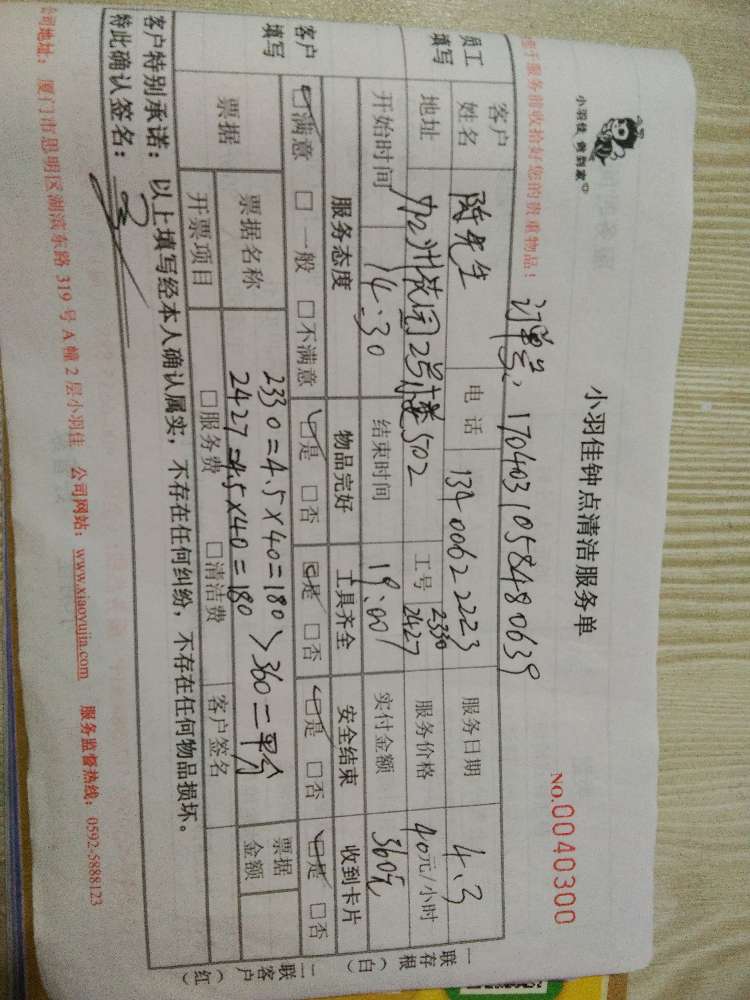 小羽佳 做到家
小羽佳钟点清洁服务单
NO.0040300
请于服务前收拾好您的贵重物品!
订单号: 17040310584480639
员工填写 客户姓名 陈先生 电话 13400622223 服务日期 4.3
地址 加州花园2号楼502 工号 2330 2427 服务价格 40元/小时
开始时间 14:30 结束时间 19:00 实付金额 360元
客户填写 服务态度 物品完好 工具齐全 安全结束 收到卡片
☑满意 □一般 □不满意 ☑是 □否 ☑是 □否 ☑是 □否 ☑是 □否
票据 票据名称 2330=4.5×40=180 > 360 二平分 票据金额
2427=4.5×40=180
开票项目 □服务费 □清洁费 客户签名
客户特别承诺:以上填写经本人确认属实,不存在任何纠纷,不存在任何物品损坏。
特此确认签名:
公司地址:厦门市思明区湖滨东路 319 号 A 幢 2 层小羽佳 公司网站:www.xiaoyujia.com 服务监督热线:0592-5888123
一联存根(白)
二联客户(红)